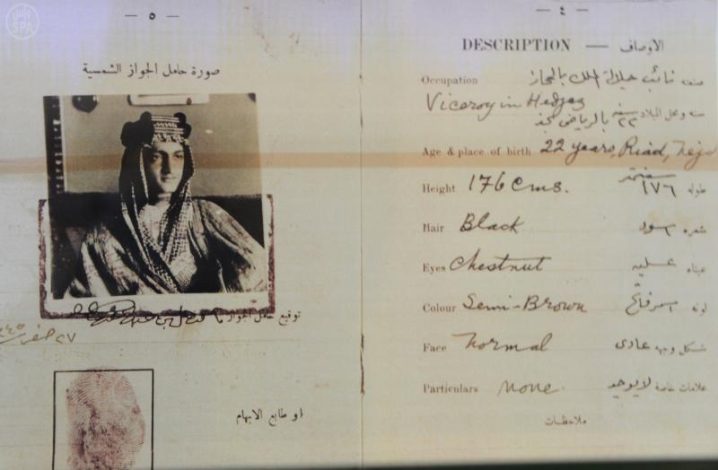 — ٤ —
DESCRIPTION — الأوصاف
Occupation صفته نائب جلالة الملك بالحجاز
Viceroy in Hedjaz
سنه ومحل الميلاد ٢٢ سنه بالرياض نجد
Age & place of birth 22 years, Riad, Nejd
Height 176 cms. طوله ١٧٦ سنتمتر
Hair Black شعره اسود
Eyes Chestnut عيناه عسليه
Colour Semi-Brown لونه اسمر فاتح
Face normal شكل وجهه عادى
Particulars none. علامات خاصة لا يوجد
ملاحظات
— ٥ —
صورة حامل الجواز الشمسية
توقيع حامل الجواز
٢٧ صفر
او طابع الابهام
واس
SPA